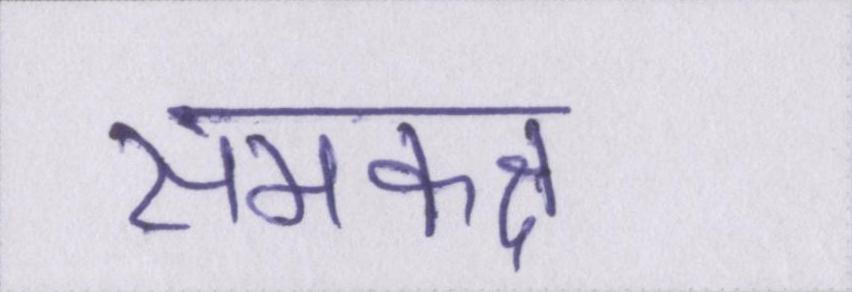 समकक्ष